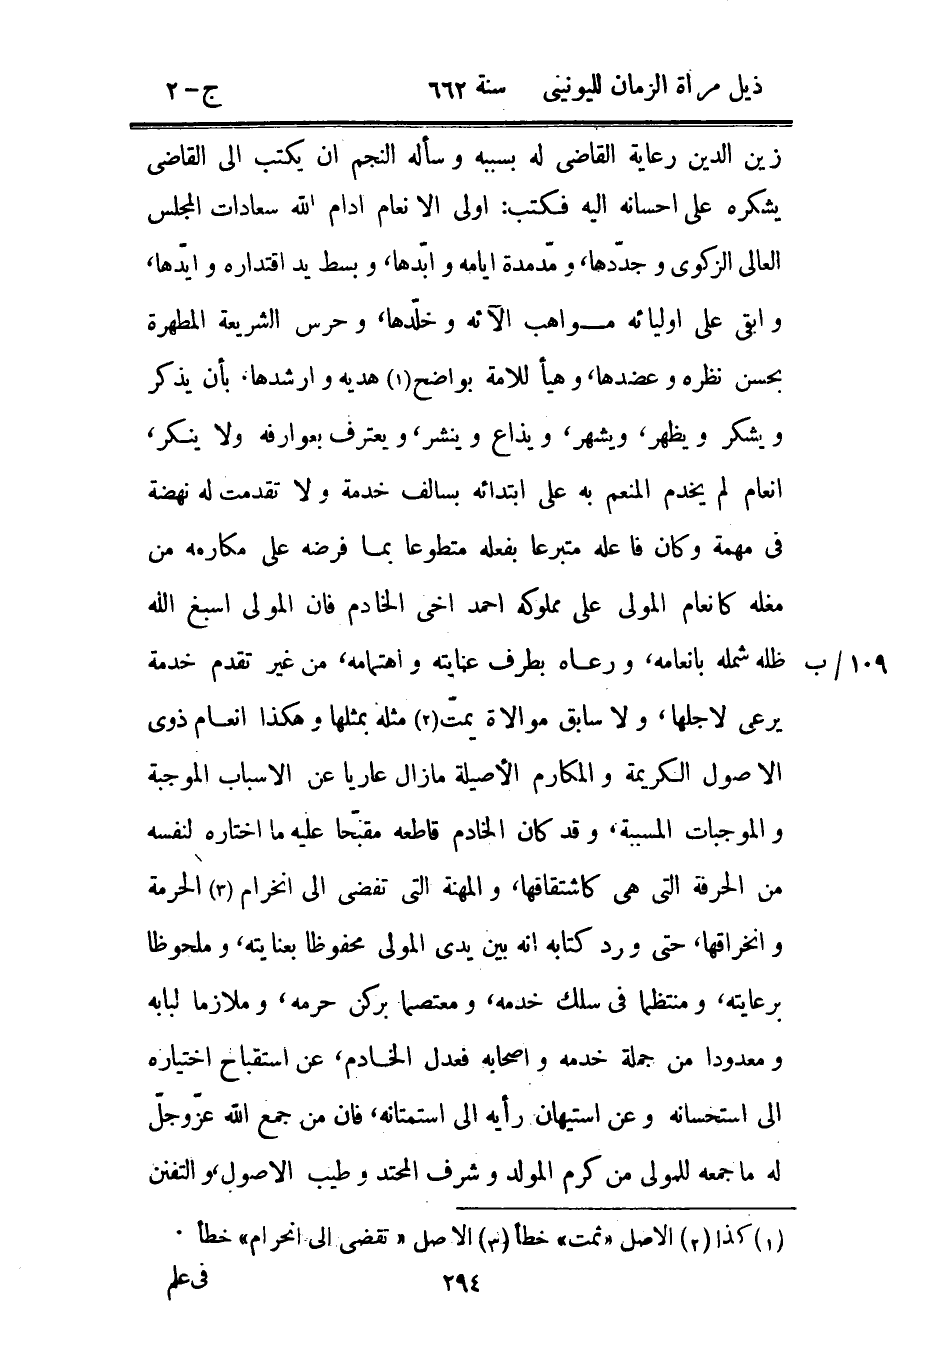 ذيل مرأة الزمان لليونينى سنة ٦٦٢ ج-٢
زين الدين رعاية القاضى له بسببه و سأله النجم ان يكتب الى القاضى
يشكره على احسانه اليه فكتب: اولى الانعام ادام الله سعادات المجلس
العالى الزكوى و جدّدها، و مّدمدة ايامه و ابّدها، و بسط يد اقتداره و ايّدها،
و ابقى على اوليائه مواهب الآئه و خلّدها، و حرس الشريعة المطهرة
بحسن نظره و عضدها، و هيأ للامة بواضح(١) هديه و ارشدها. بأن يذكر
و يشكر و يظهر، ويشهر، و يذاع و ينشر، و يعترف بعوارفه ولا ينكر،
انعام لم يخدم المنعم به على ابتدائه بسالف خدمة و لا تقدمت له نهضة
فى مهمة وكان فاعله متبرعا بفعله متطوعا بما فرضه على مكارمه من
مغله كانعام المولى على مملوكه احمد اخى الخادم فان المولى اسبغ الله
ظله شمله بانعامه، و رعاه بطرف عنايته و اهتمامه، من غير تقدم خدمة ١٠٩/ب
يرعى لاجلها، و لا سابق موالاة يمتّ(٢) مثله بمثلها و هكذا انعام ذوى
الاصول الكريمة و المكارم الأصيلة مازال عاريا عن الاسباب الموجبة
و الموجبات المسببة، و قد كان الخادم قاطعه مقبّحا عليه ما اختاره لنفسه
من الحرفة التى هى كاشتقاقها، و المهنة التى تفضى الى انخرام (٣) الحرمة
و انخراقها، حتى و رد كتابه انه بين يدى المولى محفوظا بعنايته، و ملحوظا
برعايته، و منتظما فى سلك خدمه، و معتصما بركن حرمه، و ملازما لبابه
و معدودا من جملة خدمه و اصحابه فعدل الخادم، عن استقباح اختياره
الى استحسانه و عن استيهان رأيه الى استمتانه، فان من جمع الله عزّوجلّ
له ماجمعه للمولى من كرم المولد و شرف المحتد و طيب الاصول،و التفنن
(١) كذا (٢) الاصل «ثمت» خطأ (٣) الاصل « تقضى الى انحرام» خطأ .
٢٩٤
فى علم